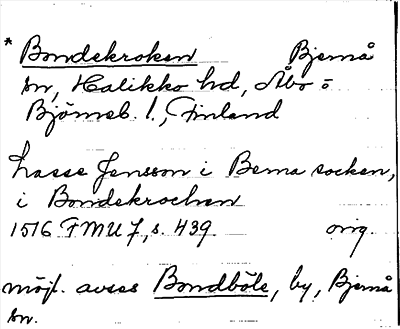 * Bondekroken Bjernå
sn, Halikko hd, Åbo o
Björneb. l., Finland
Lasse Jensson i Bema socken,
i Bondekrochen
1516 FMU 7, s. 439. orig.
möjl. avses Bondböle, by, Bjernå
sn.